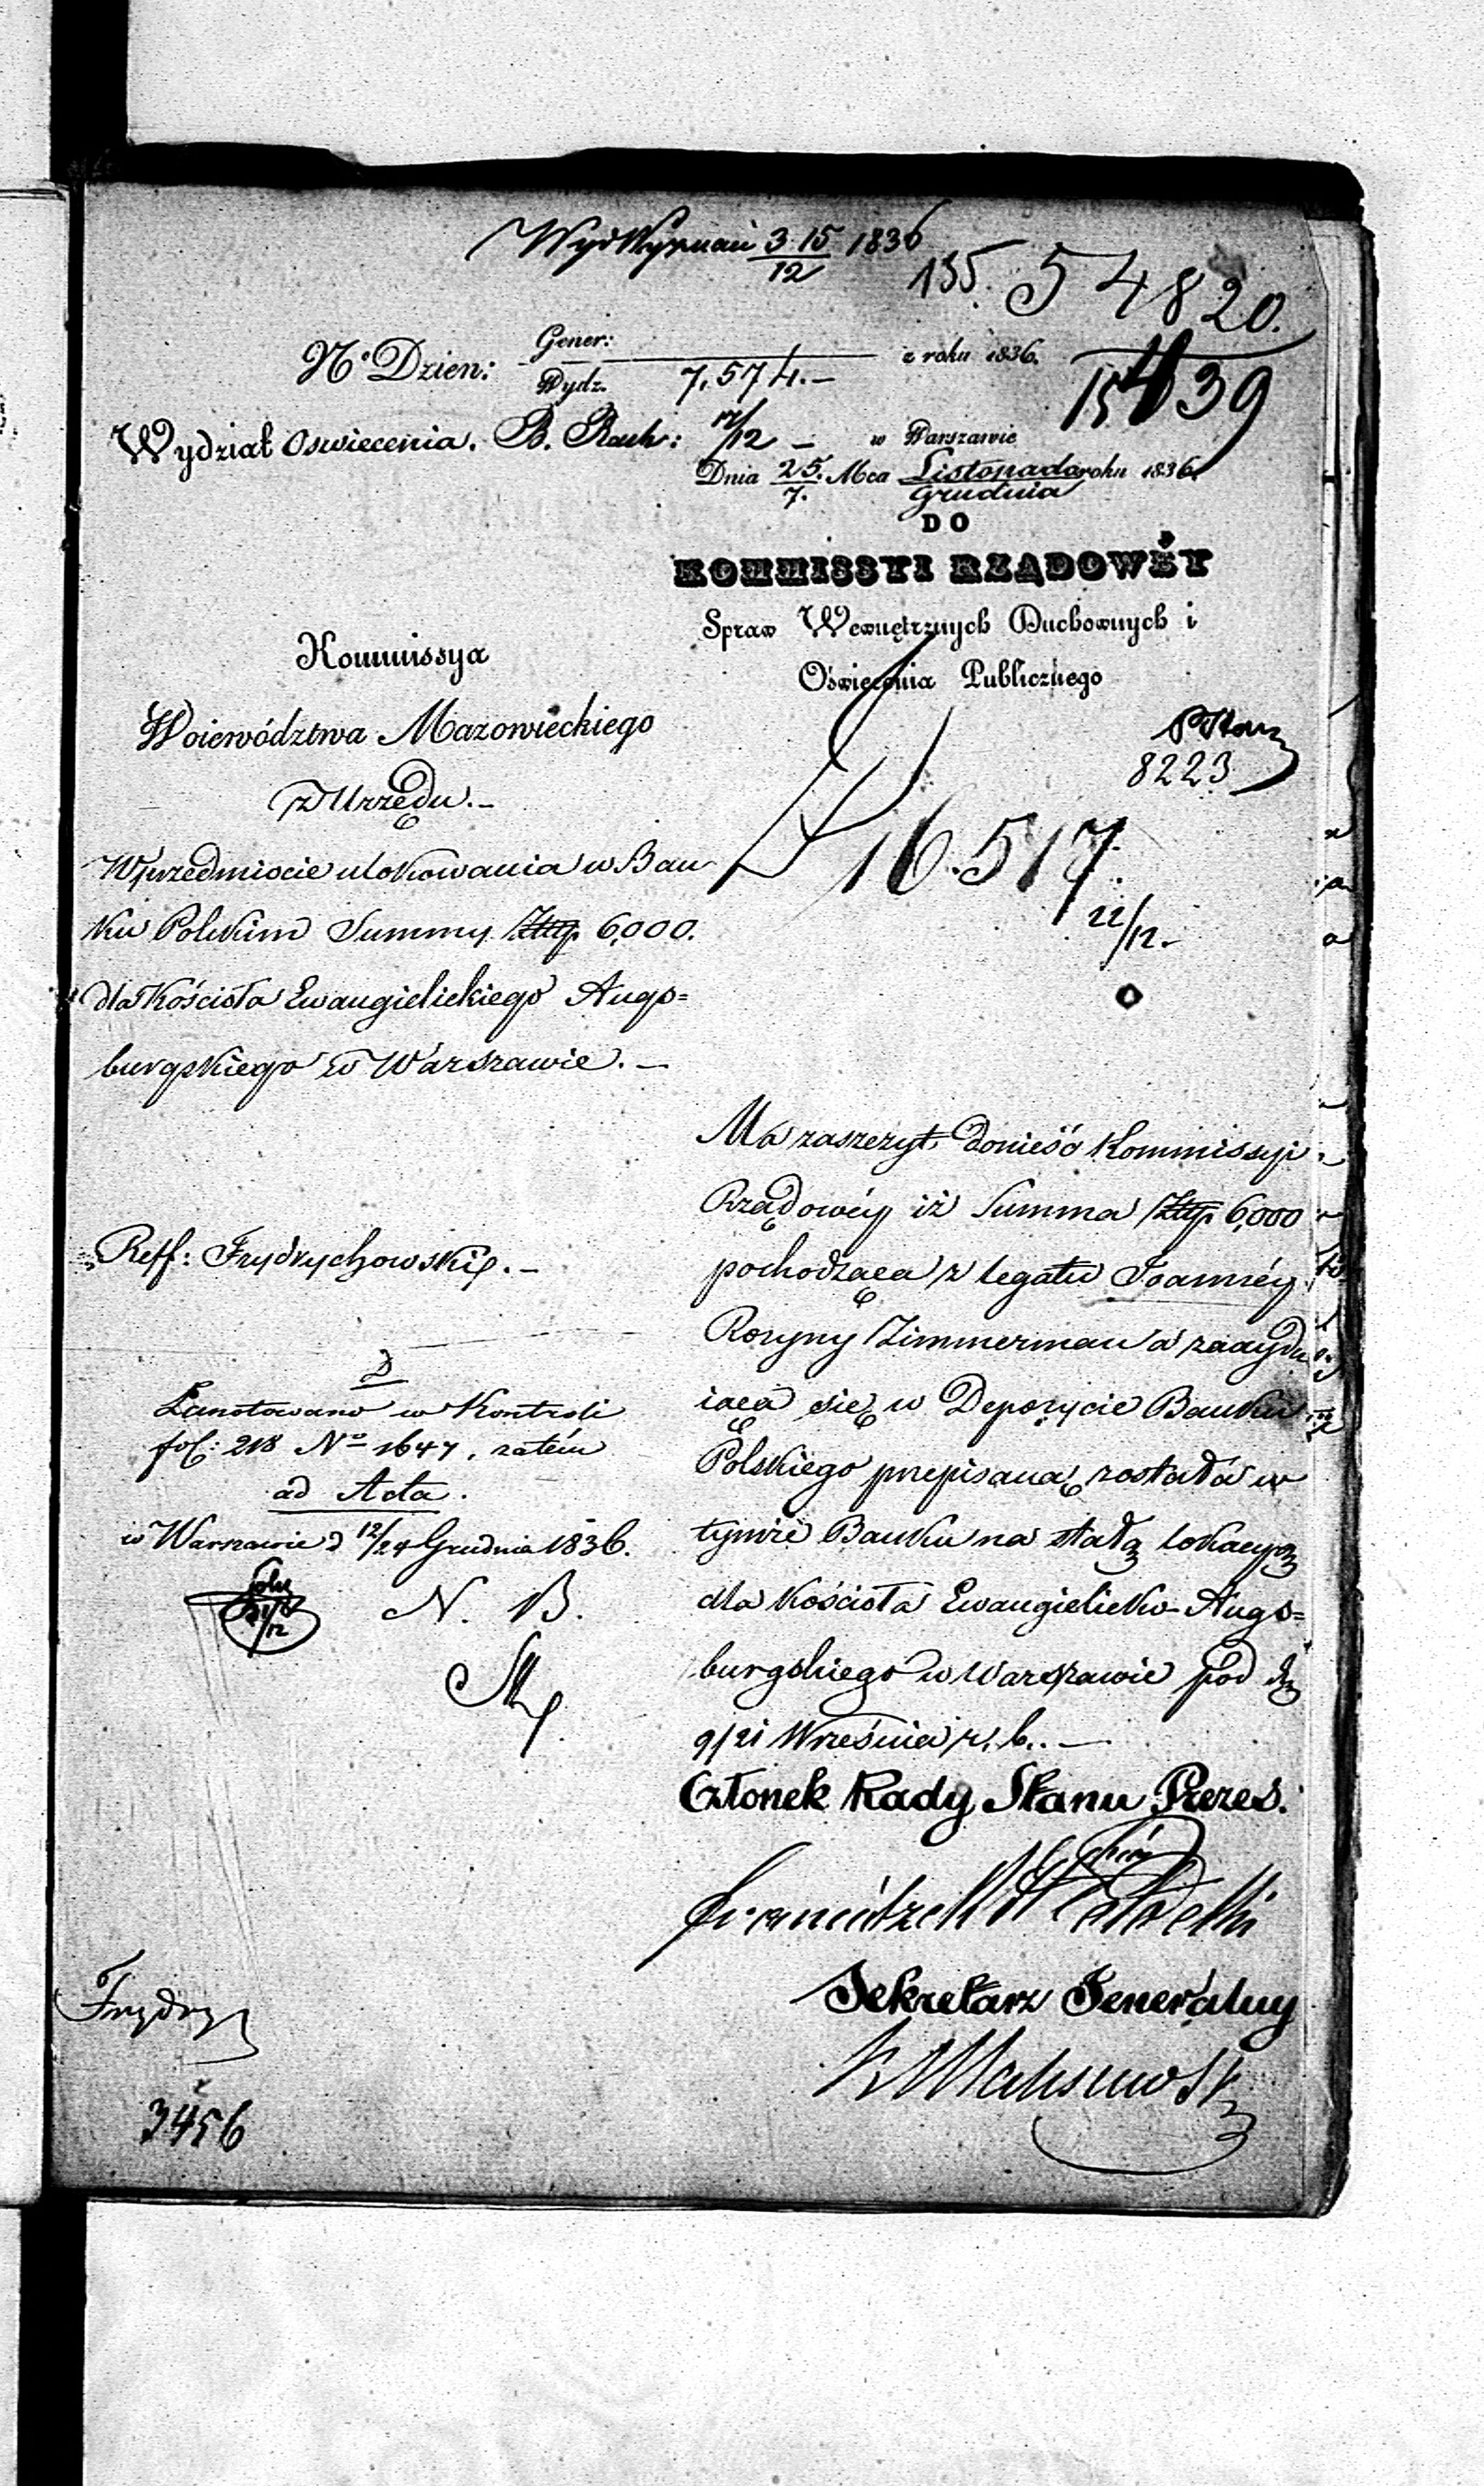 3 15 1836
12
135. 54820.
15439
No Dzien: Gener:
Wydz. 7,574.— z roku 1836.
Wydział Oswiecenia. B. Rach: 17/12 — w Warszawie
Dnia 25./7. Mca Listopada/Grudnia roku 1836.
DO
KOMMISSYI RZĄDOWÉY
Spraw Wewnętrznych Duchownych i
Oświecenia Publicznego
Kommissya
Woiewództwa Mazowieckiego
z Urzędu.—
8223
16.517
22/12.—
W przedmiocie ulokowania w Ban
ku Polskim Summy Złtp 6,000.
dla Kościoła Ewangielickiego Augs=
burgskiego w Warszawie.—
Reff: Frydrychowski.—
Zanotowano w Kontroli
fol: 218 No 1647, zatém
ad Acta.
w Warszawie d 12/24 Grudnia 1836.
N. B.
Ma zaszczyt donieść Kommissyi
Rządowéy iż Summa Złtp 6,000
pochodząca z legatu Joannéy
Rozyny Zimmerman a znaydu
iąca się w Depozycie Banku
Polskiego przepisaną została w
tymże Banku na stałą lokacyą
dla Kościoła Ewangielicko-Augs=
burgskiego w Warszawie pod d
9/21 Września r. b..—
Członek Rady Stanu Prezes.
Sekretarz Generalny
Frydry
3456